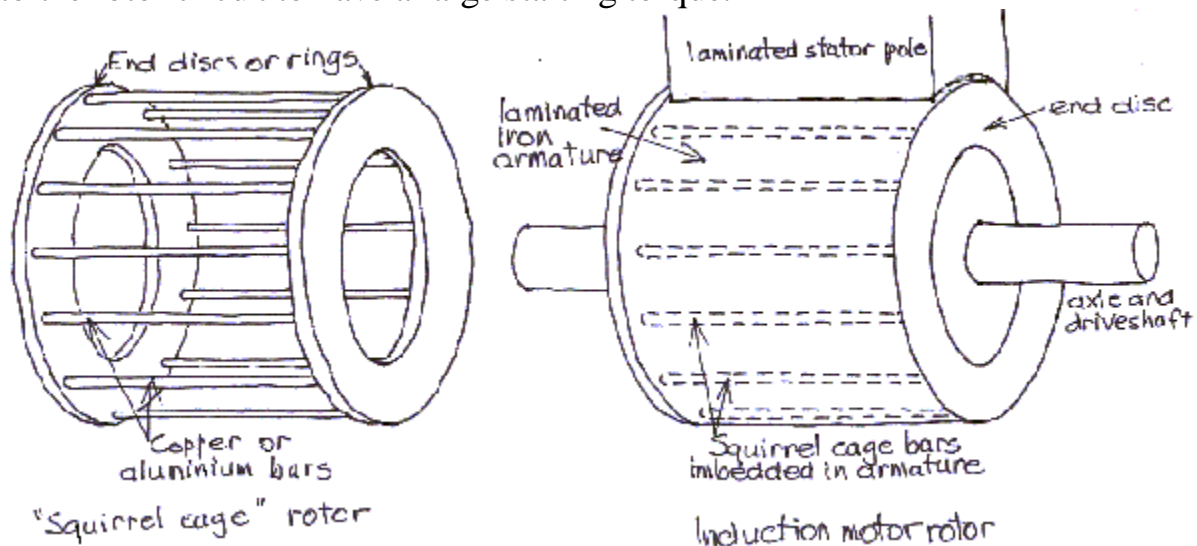 End discs or rings
Copper or
aluminium bars
"Squirrel cage" rotor
laminated stator pole
laminated
iron
armature
end disc
axle and
driveshaft
Squirrel cage bars
imbedded in armature
Induction motor rotor